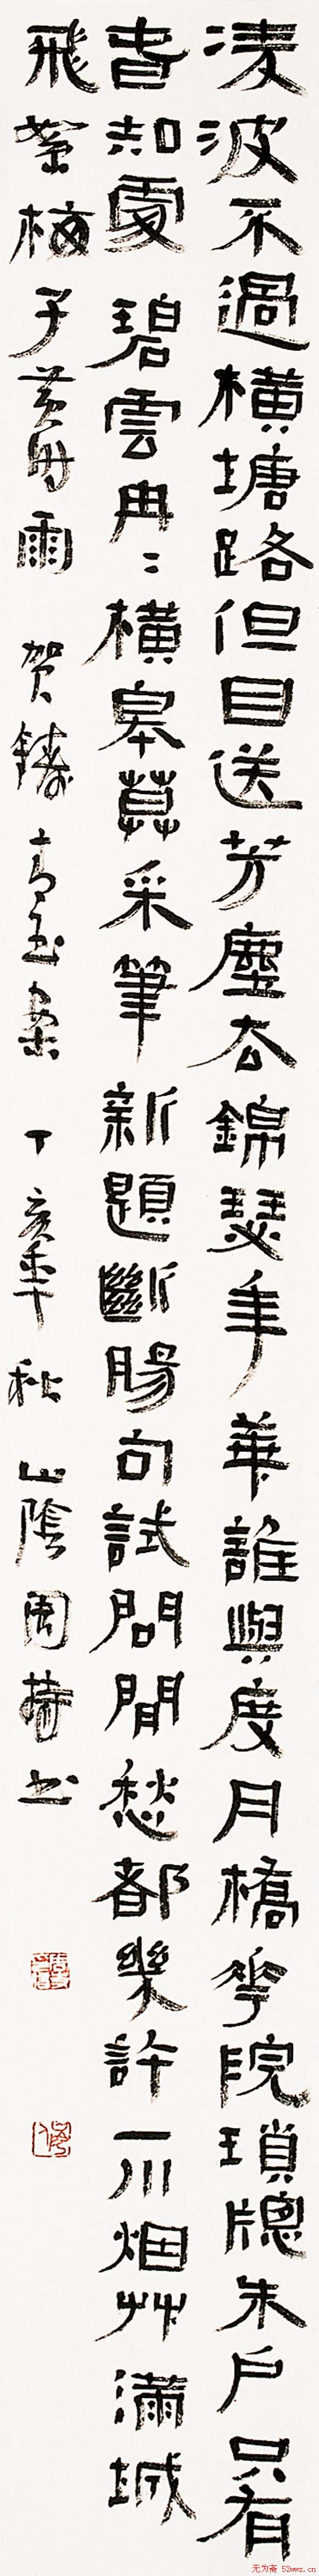 凌波不過橫塘路但目送芳塵去錦瑟年華誰與度月橋花院瑣牕朱戶只有
春知處碧雲冉〻橫皋莫采筆新題斷腸句試問閒愁都幾許一川烟艸滿城
飛絮梅子黃時雨 賀鑄青玉案 丁亥年秋 山陰周书
无为斋 52wwz.cn